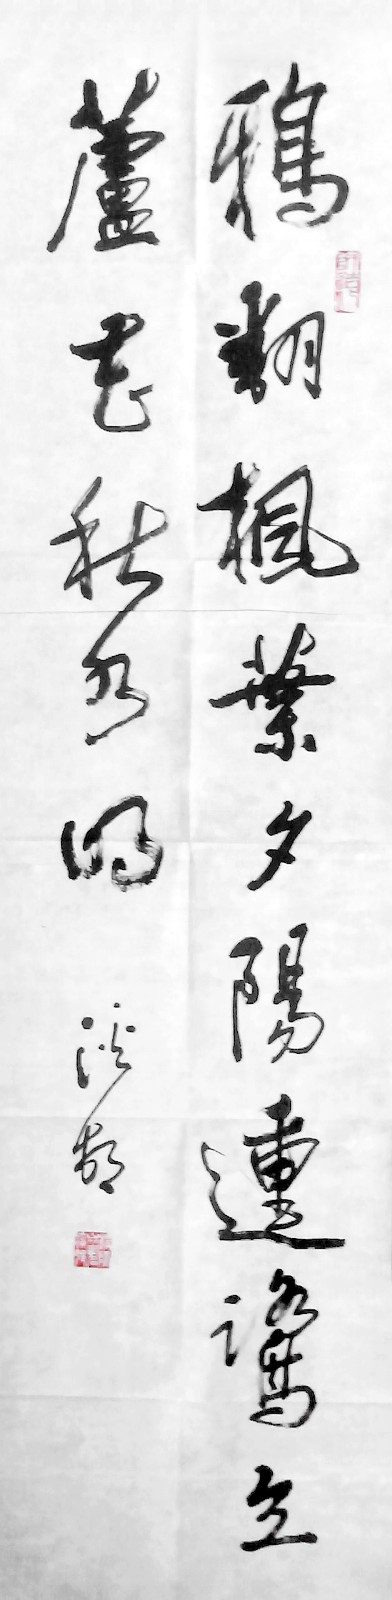 鴉翻楓葉夕陽動鷺立
蘆花秋水明